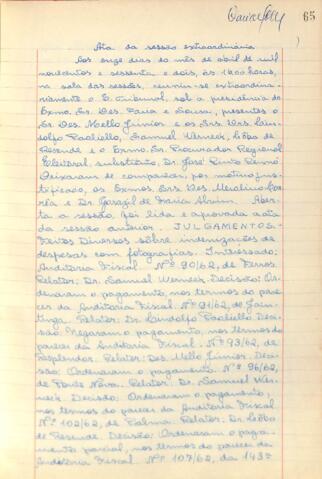 65
Ata da sessão extraordinária
Aos onze dias do mês de abril de mil
novecentos e sessenta e dois, às 14,00 horas,
na sala das sessões, reuniu-se extraordina-
riamente o E. Tribunal, sob a presidência do
Exmo. Sr. Des. Faria e Sousa, presentes o
Sr. Des. Mello Júnior e os Srs. Drs. Lan-
dolfo Paoliello, Samuel Werneck, Lôbo de
Resende e o Exmo. Sr. Procurador Regional
Eleitoral, substituto, Dr. José Pinto
Deixaram de comparecer, por motivo jus-
tificado, os Exmos. Srs. Des. Merolino Cor-
rêa e Dr. de Faria Alvim. Aber-
ta a sessão, foi lida e aprovada a ata
da sessão anterior. JULGAMENTOS.
Feitos Diversos sôbre indenizações de
despesas com fotografias. Interessado:
Auditoria Fiscal. Nº 90/62, de Ferros.
Relator: Dr. Samuel Werneck. Decisão: Or-
denaram o pagamento, nos termos do pare-
cer da Auditoria Fiscal. Nº 91/62, de
Relator: Dr. Landolfo Paoliello. Deci-
são: Negaram o pagamento, nos termos do
parecer da Auditoria Fiscal. Nº 93/62, de
Resplendor. Relator: Des. Mello Júnior. Deci-
são: Ordenaram o pagamento. Nº 96/62,
de Ponte Nova. Relator: Dr. Samuel Wer-
neck. Decisão: Ordenaram o pagamento,
nos termos do parecer da Auditoria Fiscal
Nº 102/62, de Palma. Relator: Dr. Lôbo
de Resende. Decisão: Ordenaram o paga-
mento parcial, nos termos do parecer da
Auditoria Fiscal. Nº 107/62, da 143ª